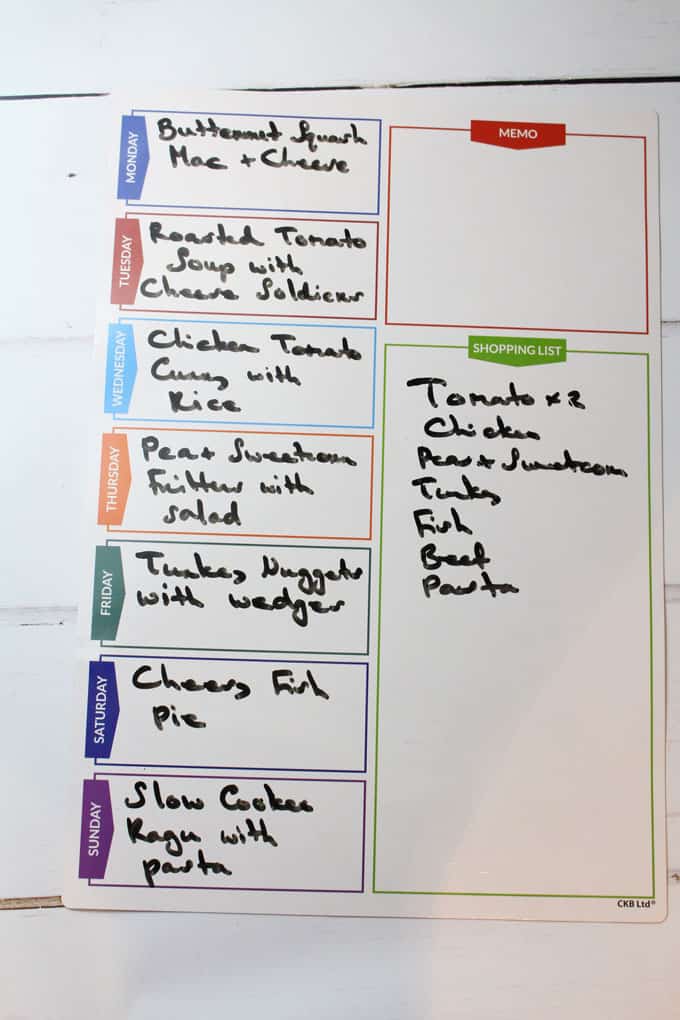 MONDAY
Butternut Squash
Mac + Cheese
TUESDAY
Roasted Tomato
Soup with
Cheese Soldiers
WEDNESDAY
Chicken Tomato
Curry with
Rice
THURSDAY
Pea + Sweetcorn
Fritters with
salad
FRIDAY
Turkey Nuggets
with wedges
SATURDAY
Cheesy Fish
Pie
SUNDAY
Slow Cooker
Ragu with
pasta
MEMO
SHOPPING LIST
Tomato x 2
Chicken
Peas + Sweetcorn
Turkey
Fish
Beef
Pasta
CKB Ltd®